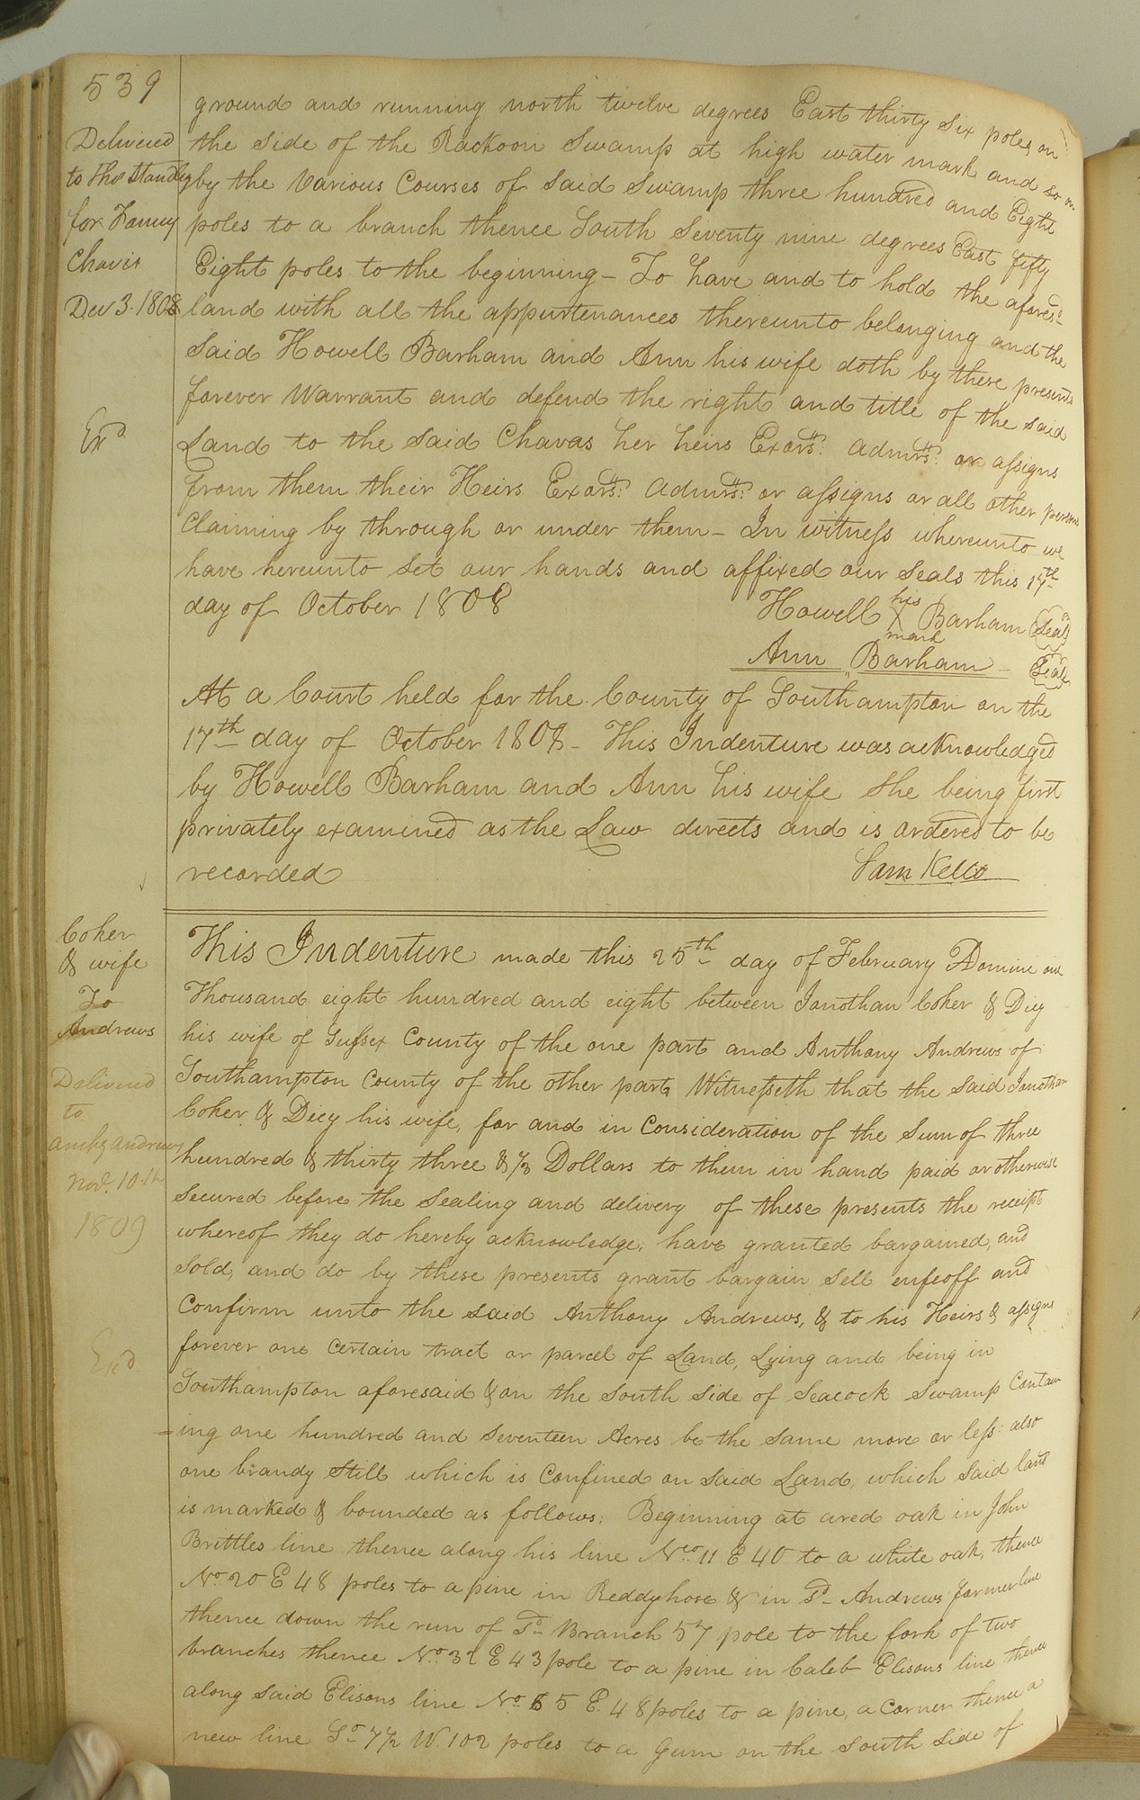 539
Delivered
to Thos Standley
for Fanny
Chavis
Decr 3. 1808
Exd
ground and running north twelve degrees East thirty six poles on
the side of the Rackoon Swamp at high water mark and so on
by the Various Courses of said Swamp three hundred and Eight
poles to a branch thence South Seventy nine degrees East fifty
Eight poles to the beginning – To have and to hold the aforesd
land with all the appurtenances thereunto belonging and the
said Howell Barham and Ann his wife doth by these presents
forever Warrant and defend the right and title of the said
Land to the said Chavas her heirs Exors: admrs: or assigns
from them their Heirs Exors: admrs: or assigns or all other persons
Claiming by through or under them – In witness whereunto we
have hereunto set our hands and affixed our Seals this 17th
day of October 1808
Howell his X mark Barham (Seal)
Ann Barham – (Seal)
At a Court held for the County of Southampton on the
17th day of October 1808 – This Indenture was acknowledged
by Howell Barham and Ann his wife She being first
privately examined as the Law directs and is ordered to be
recorded
Sam Kello
Coker
& wife
To
Andrews
Delivered
to
Andrews
Nov. 10th
1809
Exd
This Indenture made this 25th day of February Domini one
Thousand eight hundred and eight between Jonothan Coker & Dicy
his wife of Sussex County of the one part and Anthony Andrews of
Southampton County of the other part, Witnesseth that the said Jonothan
Coker & Dicy his wife, for and in Consideration of the Sum of three
hundred & thirty three & 1/3 Dollars to them in hand paid or otherwise
Secured before the Sealing and delivery of these presents the receipt
whereof they do hereby acknowledge, have granted bargained, and
Sold, and do by these presents grant bargain Sell enfeoff and
Confirm unto the said Anthony Andrews, & to his Heirs & assigns
forever one Certain tract or parcel of Land, Lying and being in
Southampton aforesaid & on the South Side of Seacock Swamp Contain
=ing one hundred and Seventeen Acres be the same more or less also
one brandy Still which is Confined on said Land, which said land
is marked & bounded as follows: Beginning at a red oak in John
Brittles line thence along his line No 11 E 40 to a white oak, thence
No 20 E 48 poles to a pine in & in Sd Andrews former line
thence down the run of Sd Branch 57 pole to the fork of two
branches thence No 32 E 43 pole to a pine in Caleb Elisons line thence
along said Elisons line No 65 E. 48 poles to a pine, a Corner thence a
new line So 7 1/2 W. 102 poles to a Gum on the South Side of